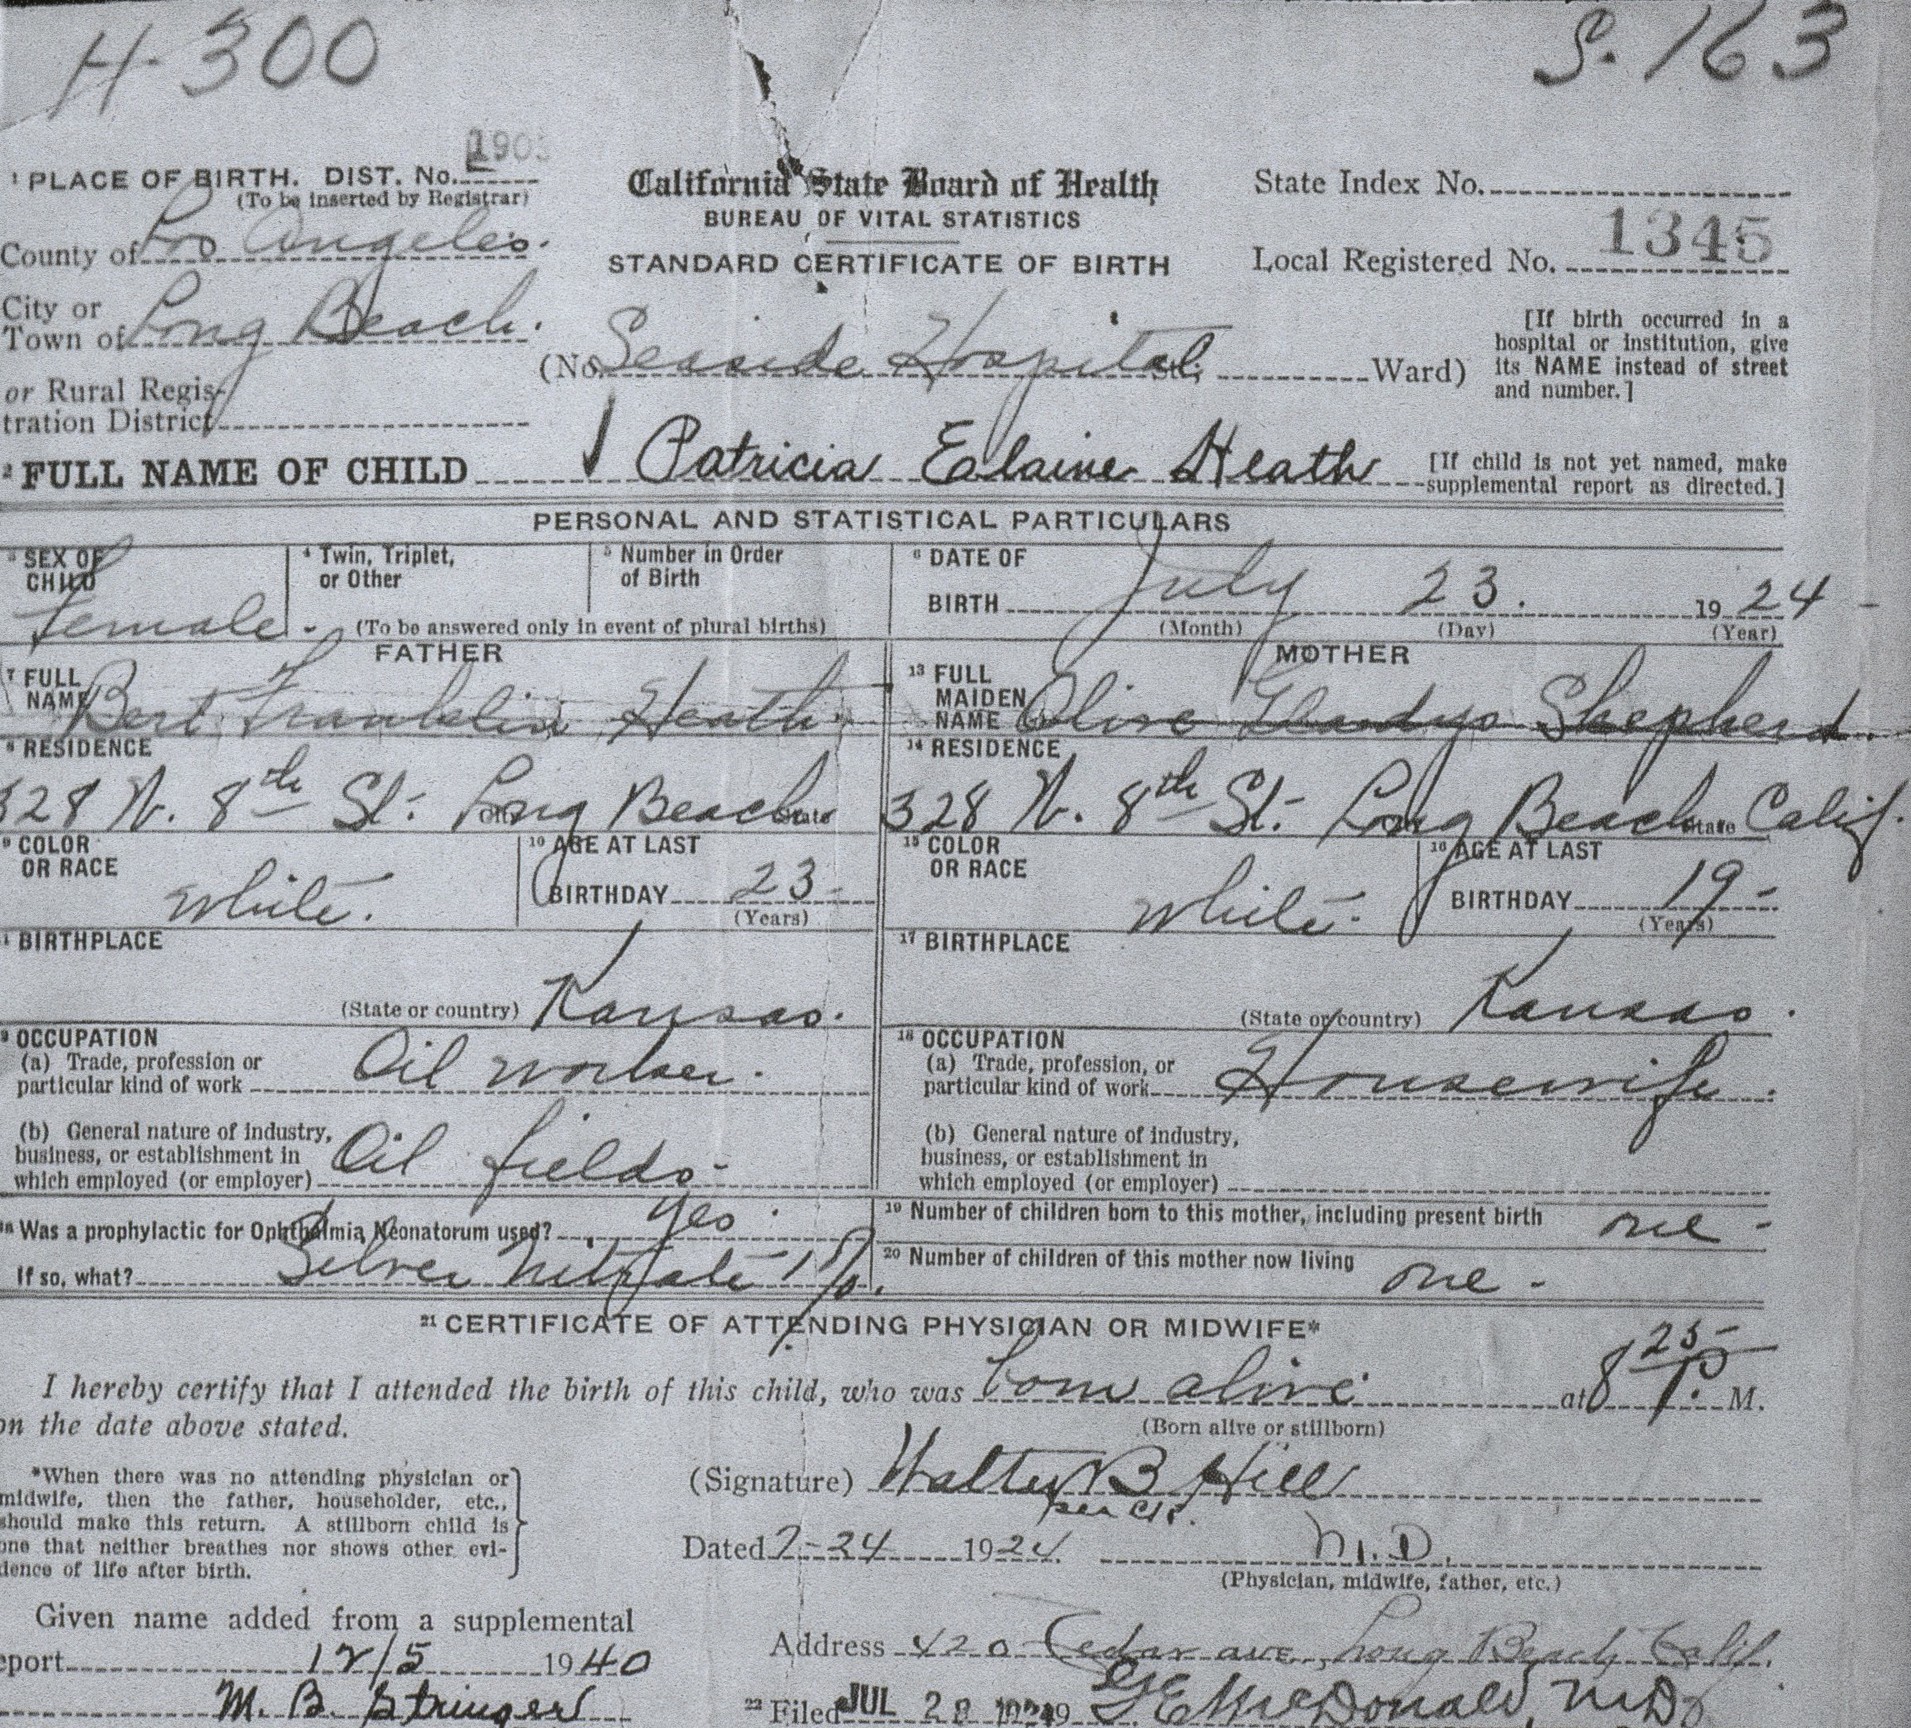 H-300
S. 163
1 PLACE OF BIRTH. DIST. No. 190
(To be inserted by Registrar)
California State Board of Health
BUREAU OF VITAL STATISTICS
STANDARD CERTIFICATE OF BIRTH
State Index No.
Local Registered No. 1345
County of Los Angeles.
City or
Town of Long Beach.
or Rural Regis-
tration District
(No. Seaside Hospital St; Ward)
[If birth occurred in a
hospital or institution, give
its NAME instead of street
and number.]
2 FULL NAME OF CHILD Patricia Elaine Heath
[If child is not yet named, make
supplemental report as directed.]
PERSONAL AND STATISTICAL PARTICULARS
3 SEX OF
CHILD
female.
4 Twin, Triplet,
or Other
5 Number in Order
of Birth
(To be answered only in event of plural births)
6 DATE OF
BIRTH July 23. 1924
(Month) (Day) (Year)
FATHER
7 FULL
NAME Bert Franklin Heath.
8 RESIDENCE
328 W. 8th St. Long Beach State
9 COLOR
OR RACE
White.
10 AGE AT LAST
BIRTHDAY 23
(Years)
BIRTHPLACE
(State or country) Kansas.
OCCUPATION
(a) Trade, profession or
particular kind of work Oil worker.
(b) General nature of industry,
business, or establishment in
which employed (or employer) Oil fields
MOTHER
13 FULL
MAIDEN
NAME Olive Gladys Shepherd.
14 RESIDENCE
328 W. 8th St. Long Beach State Calif.
15 COLOR
OR RACE
White.
16 AGE AT LAST
BIRTHDAY 19
(Years)
17 BIRTHPLACE
(State or country) Kansas.
18 OCCUPATION
(a) Trade, profession, or
particular kind of work Housewife.
(b) General nature of industry,
business, or establishment in
which employed (or employer)
Was a prophylactic for Ophthalmia Neonatorum used? Yes.
If so, what? Silver Nitrate 1%.
19 Number of children born to this mother, including present birth one
20 Number of children of this mother now living one
21 CERTIFICATE OF ATTENDING PHYSICIAN OR MIDWIFE*
I hereby certify that I attended the birth of this child, who was born alive at 8 25 P. M.
(Born alive or stillborn)
on the date above stated.
*When there was no attending physician or
midwife, then the father, householder, etc.,
should make this return. A stillborn child is
one that neither breathes nor shows other evi-
dence of life after birth.
(Signature) Walter B Hill
Dated 7-24 1924. M.D.
(Physician, midwife, father, etc.)
Given name added from a supplemental
report 12/5 1940
M. B. Stringer
Address 420 Cedar ave, Long Beach Calif.
22 Filed JUL 28 19 G E McDonald, M.D.